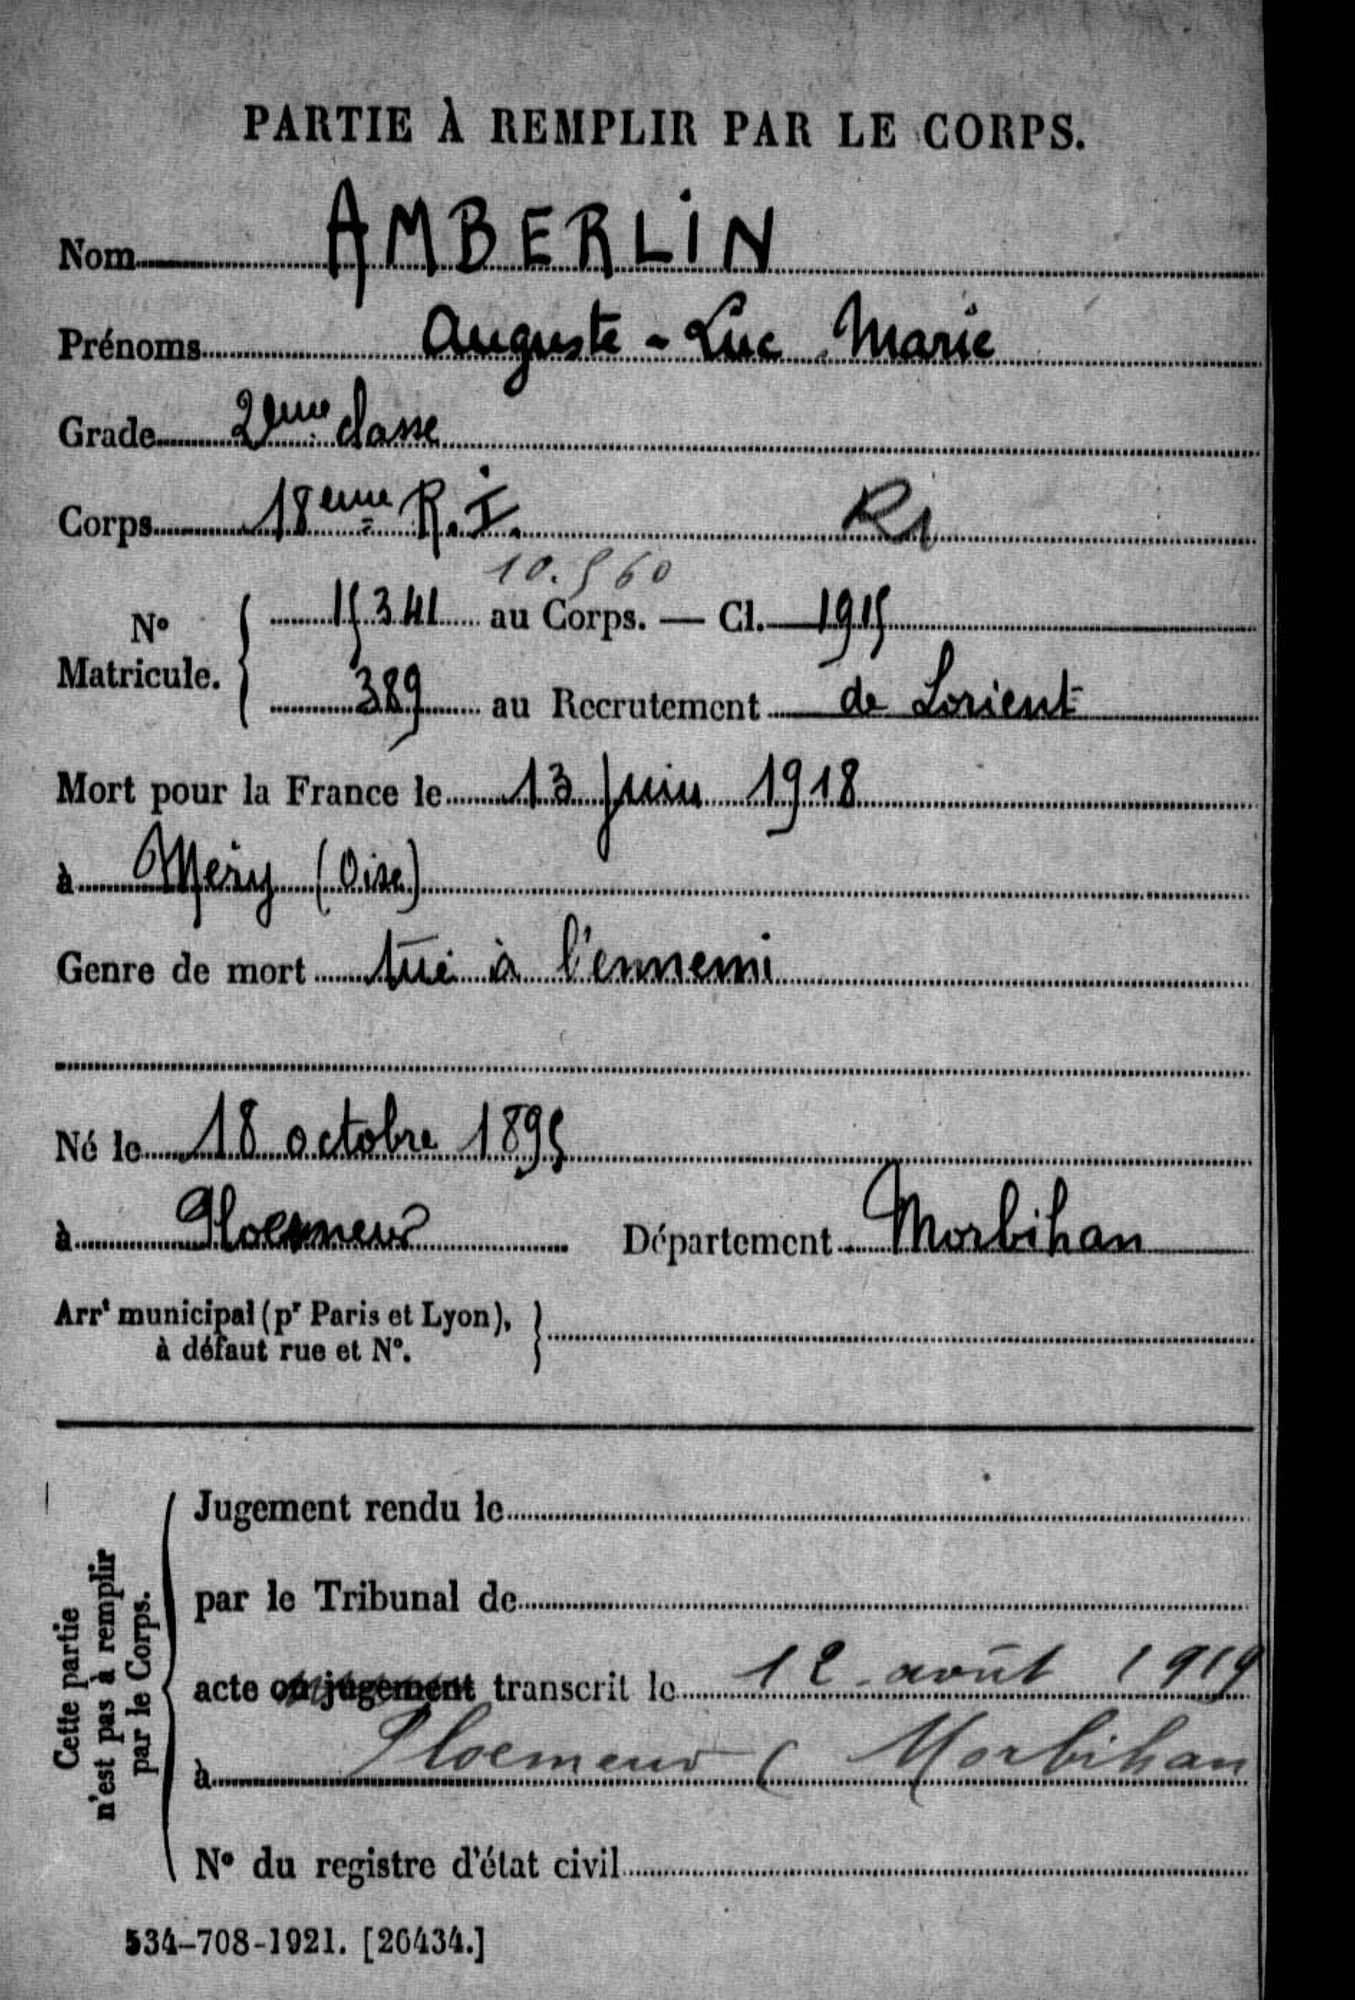 PARTIE À REMPLIR PAR LE CORPS.
Nom AMBERLIN
Prénoms Auguste - Luc Marie
Grade 2ème classe
Corps 18eme R.I. R1
10.560
N° Matricule. 15341 au Corps. — Cl. 1915
389 au Recrutement de Lorient
Mort pour la France le 13 Juin 1918
à Méry (Oise)
Genre de mort tué à l'ennemi
Né le 18 octobre 1895
à Ploemeur Département Morbihan
Arrt municipal (pr Paris et Lyon),
à défaut rue et N°.
Cette partie
n'est pas à remplir
par le Corps.
Jugement rendu le
par le Tribunal de
acte ou jugement transcrit le 12 août 1919
à Ploemeur ( Morbihan
N° du registre d'état civil
534-708-1921. [26434.]